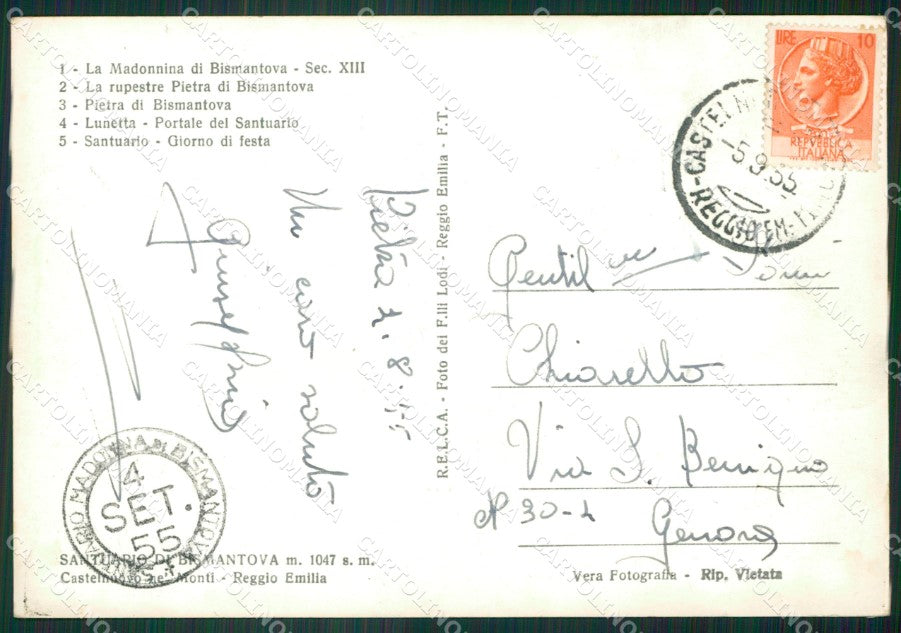 1 - La Madonnina di Bismantova - Sec. XIII
2 - La rupestre Pietra di Bismantova
3 - Pietra di Bismantova
4 - Lunetta - Portale del Santuario
5 - Santuario - Giorno di festa
Pietra
Un caro saluto
Giuseppina
SANTUARIO MADONNA DI BISMANTOVA
4
SET.
55
SANTUARIO DI BISMANTOVA m. 1047 s. m.
Castelnuovo ne' Monti - Reggio Emilia
R.E.L.C.A. - Foto dei F.lli Lodi - Reggio Emilia - F.T.
LIRE 10
REPVBBLICA
ITALIANA
-5.9.55
REGGIO EM.
Gentil
Chiarello
Via S. Benigno
N 30-
Genova
Vera Fotografia - Rip. Vietata
CARTOLINOMANIA